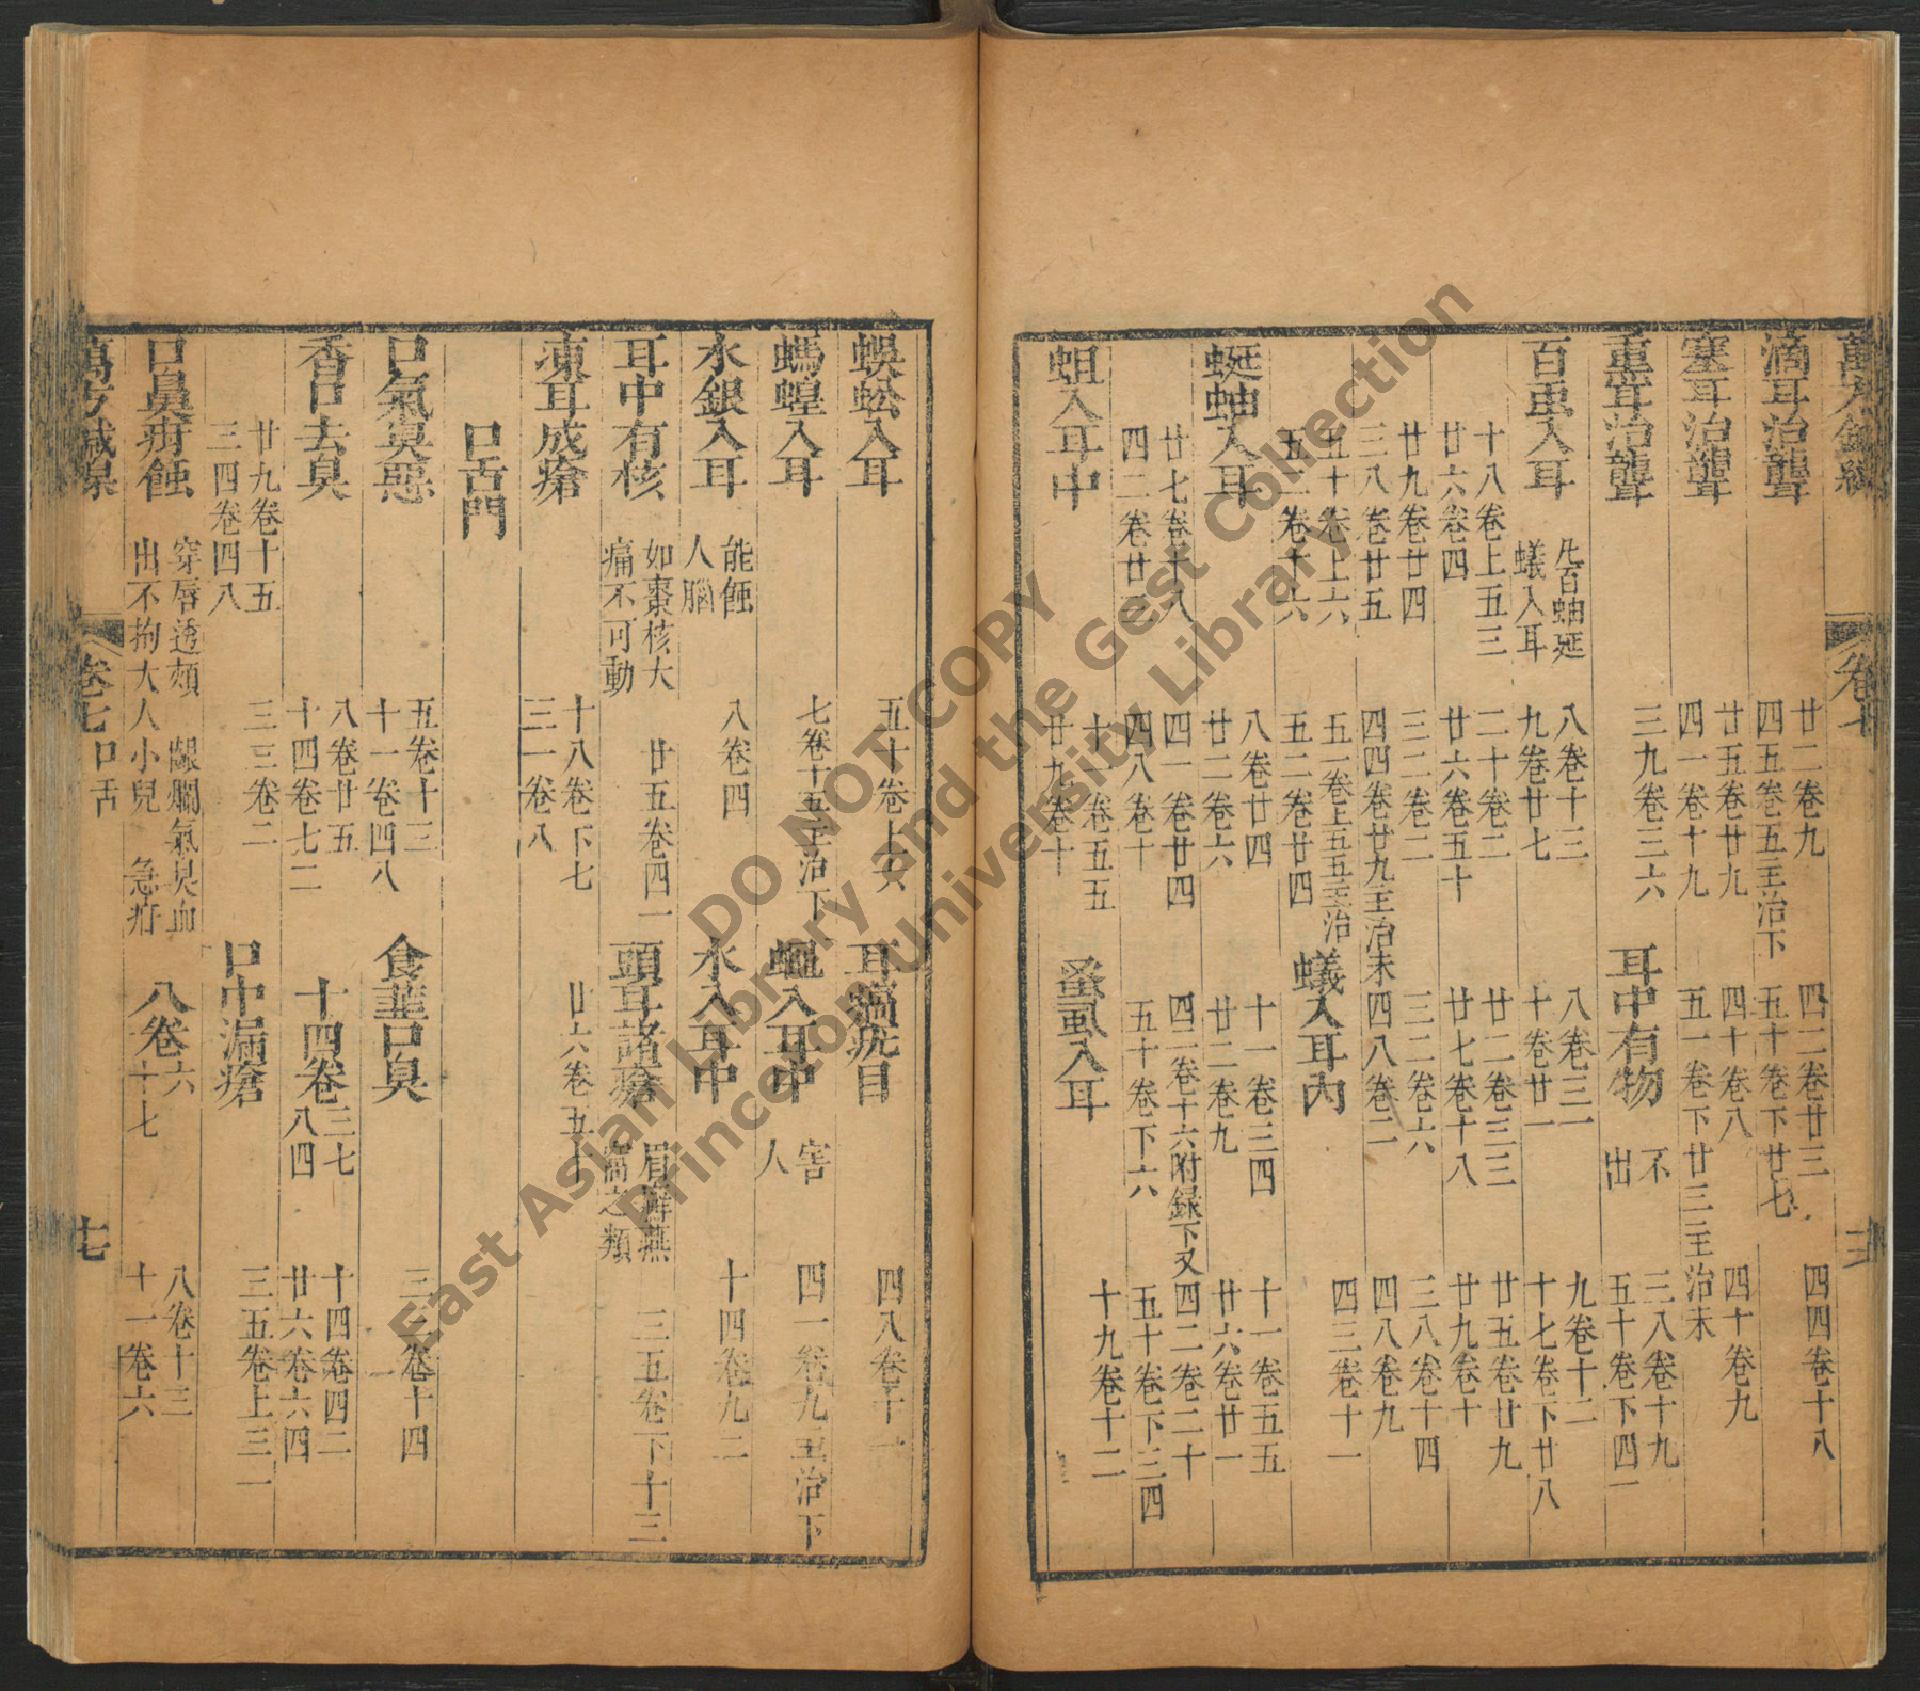 萬方鍼線 卷七
滴耳治聾 廿二卷九 四五卷五主治下 四二卷廿三 五十卷下廿七 四四卷十八
塞耳治聾 廿五卷廿九 四一卷十九 四十卷八 五一卷下廿三主治末 四十卷九
重耳治聾 三九卷三六 耳中有物 不出 三八卷十九 五十卷下四一
百蟲入耳 先百蚰蜒 蟻入耳 八卷十三 九卷廿七 八卷三一 十卷廿一 九卷十二 十七卷下廿八
十八卷上五三 廿六卷四 二十卷二 廿六卷五十 廿二卷三三 廿七卷十八 廿五卷廿九 廿九卷十
廿九卷廿四 三八卷廿五 三二卷二 四四卷廿九主治末 三二卷六 四八卷二 三八卷十四 四八卷九
五十卷上六 五二卷十六 五一卷上五五主治 五二卷廿四 蟻入耳內 四三卷十一
蜒蚰入耳 八卷廿四 廿二卷六 十一卷三四 廿二卷九 十一卷五五 廿六卷廿一
廿七卷十八 四二卷廿三 四一卷廿四 四八卷十 四二卷十六附録下又 五十卷下六 四二卷二十 五十卷下三四
蛆入耳中 十一卷五五 廿九卷十 蚤虱入耳 十九卷十二
蜈蚣入耳 五十卷上六 耳滴疣目 四八卷十一
螞蝗入耳 七卷十五主治下 蛆入耳中 害人 四一卷九主治下
水銀入耳 能蝕人腦 八卷四 水入耳中 十四卷九二
耳中有核 如棗核大 痛不可動 廿五卷四一 頭耳諸瘡 眉癬燕窩之類 三五卷下十三
凍耳成瘡 十八卷下七 三一卷八 廿六卷五十
口舌門
口氣臭惡 五卷十三 十一卷四八 食韮口臭 三三卷十四
香口去臭 八卷廿五 十四卷七二 十四卷 三七 八四 十四卷四二 廿六卷六四
廿九卷十五 三四卷四八 三三卷二 口中漏瘡 三五卷上三一
口鼻疳蝕 穿唇透頰 出不拘大人小兒 齦爛氣臭血 急疳 八卷 六 十七 八卷十三 十一卷六
卷七 口舌 七